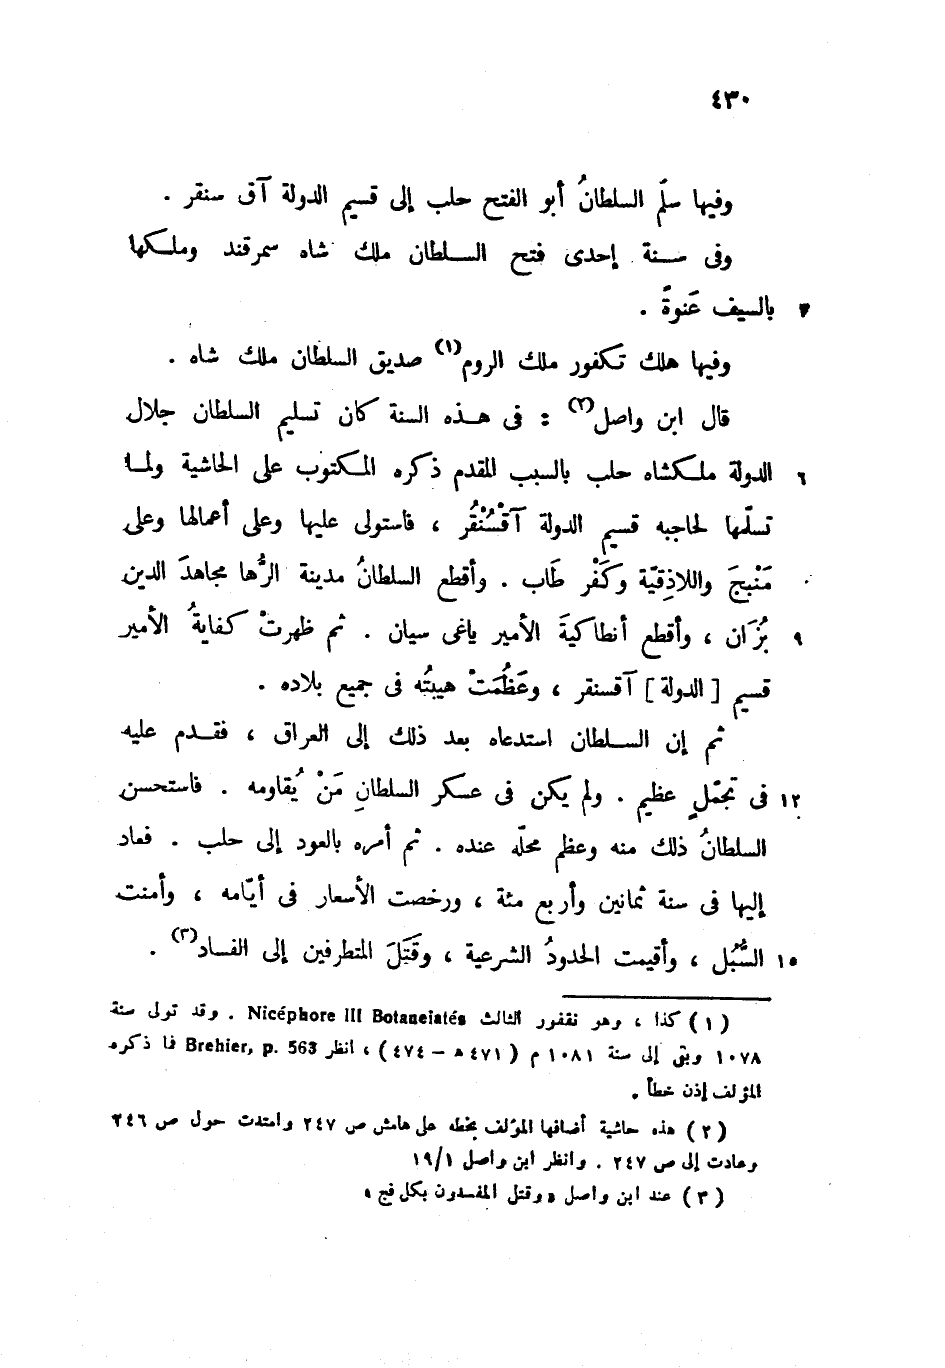 ٤٣٠
وفيها سلّم السلطانُ أبو الفتح حلب إلى قسيم الدولة آق سنقر .
وفى سنة إحدى فتح السلطان ملك شاه سمرقند وملكها
٣ بالسيف عَنوةً .
وفيها هلك تكفور ملك الروم(١) صديق السلطان ملك شاه .
قال ابن واصل(٢) : فى هذه السنة كان تسليم السلطان جلال
٦ الدولة ملكشاه حلب بالسبب المقدم ذكره المكتوب على الحاشية ولما
تسلّمها لحاجبه قسيم الدولة آقْسُنْقُر ، فاستولى عليها وعلى أعمالها وعلى
مَنْبِجَ واللاذِقيّة وكَفْر طَاب . وأقطع السلطانُ مدينة الرُّها مجاهدَ الدين
٩ بُزَان ، وأقطع أنطاكيةَ الأمير ياغى سيان . ثم ظهرتْ كفايةُ الأمير
قسيم [ الدولة ] آقسنقر ، وعَظُمَتْ هيبتُه فى جميع بلاده .
ثم إن السلطان استدعاه بعد ذلك إلى العراق ، فقدم عليه
١٢ فى تجمّلٍ عظيم . ولم يكن فى عسكر السلطانِ مَنْ يُقاومه . فاستحسن
السلطانُ ذلك منه وعظم محلّه عنده . ثم أمره بالعود إلى حلب . فعاد
إليها فى سنة ثمانين وأربع مئة ، ورخصت الأسعار فى أيّامه ، وأمنت
١٥ السُّبُل ، وأقيمت الحدودُ الشرعية ، وقَتَلَ المتطرفين إلى الفساد(٣) .
(١) كذا ، وهو نقفور الثالث Nicéphore III Botaneiatés . وقد تولى سنة
١٠٧٨ وبقى إلى سنة ١٠٨١ م (٤٧١ ه – ٤٧٤) ، انظر Brehier, p. 563 فا ذكره
المؤلف إذن خطأ .
(٢) هذه حاشية أضافها المؤلف بخطه على هامش ص ٢٤٧ وامتدت حول ص ٢٤٦
وعادت إلى ص ٢٤٧ . وانظر ابن واصل ١٩/١
(٣) عند ابن واصل « وقتل المفسدون بكل فج »